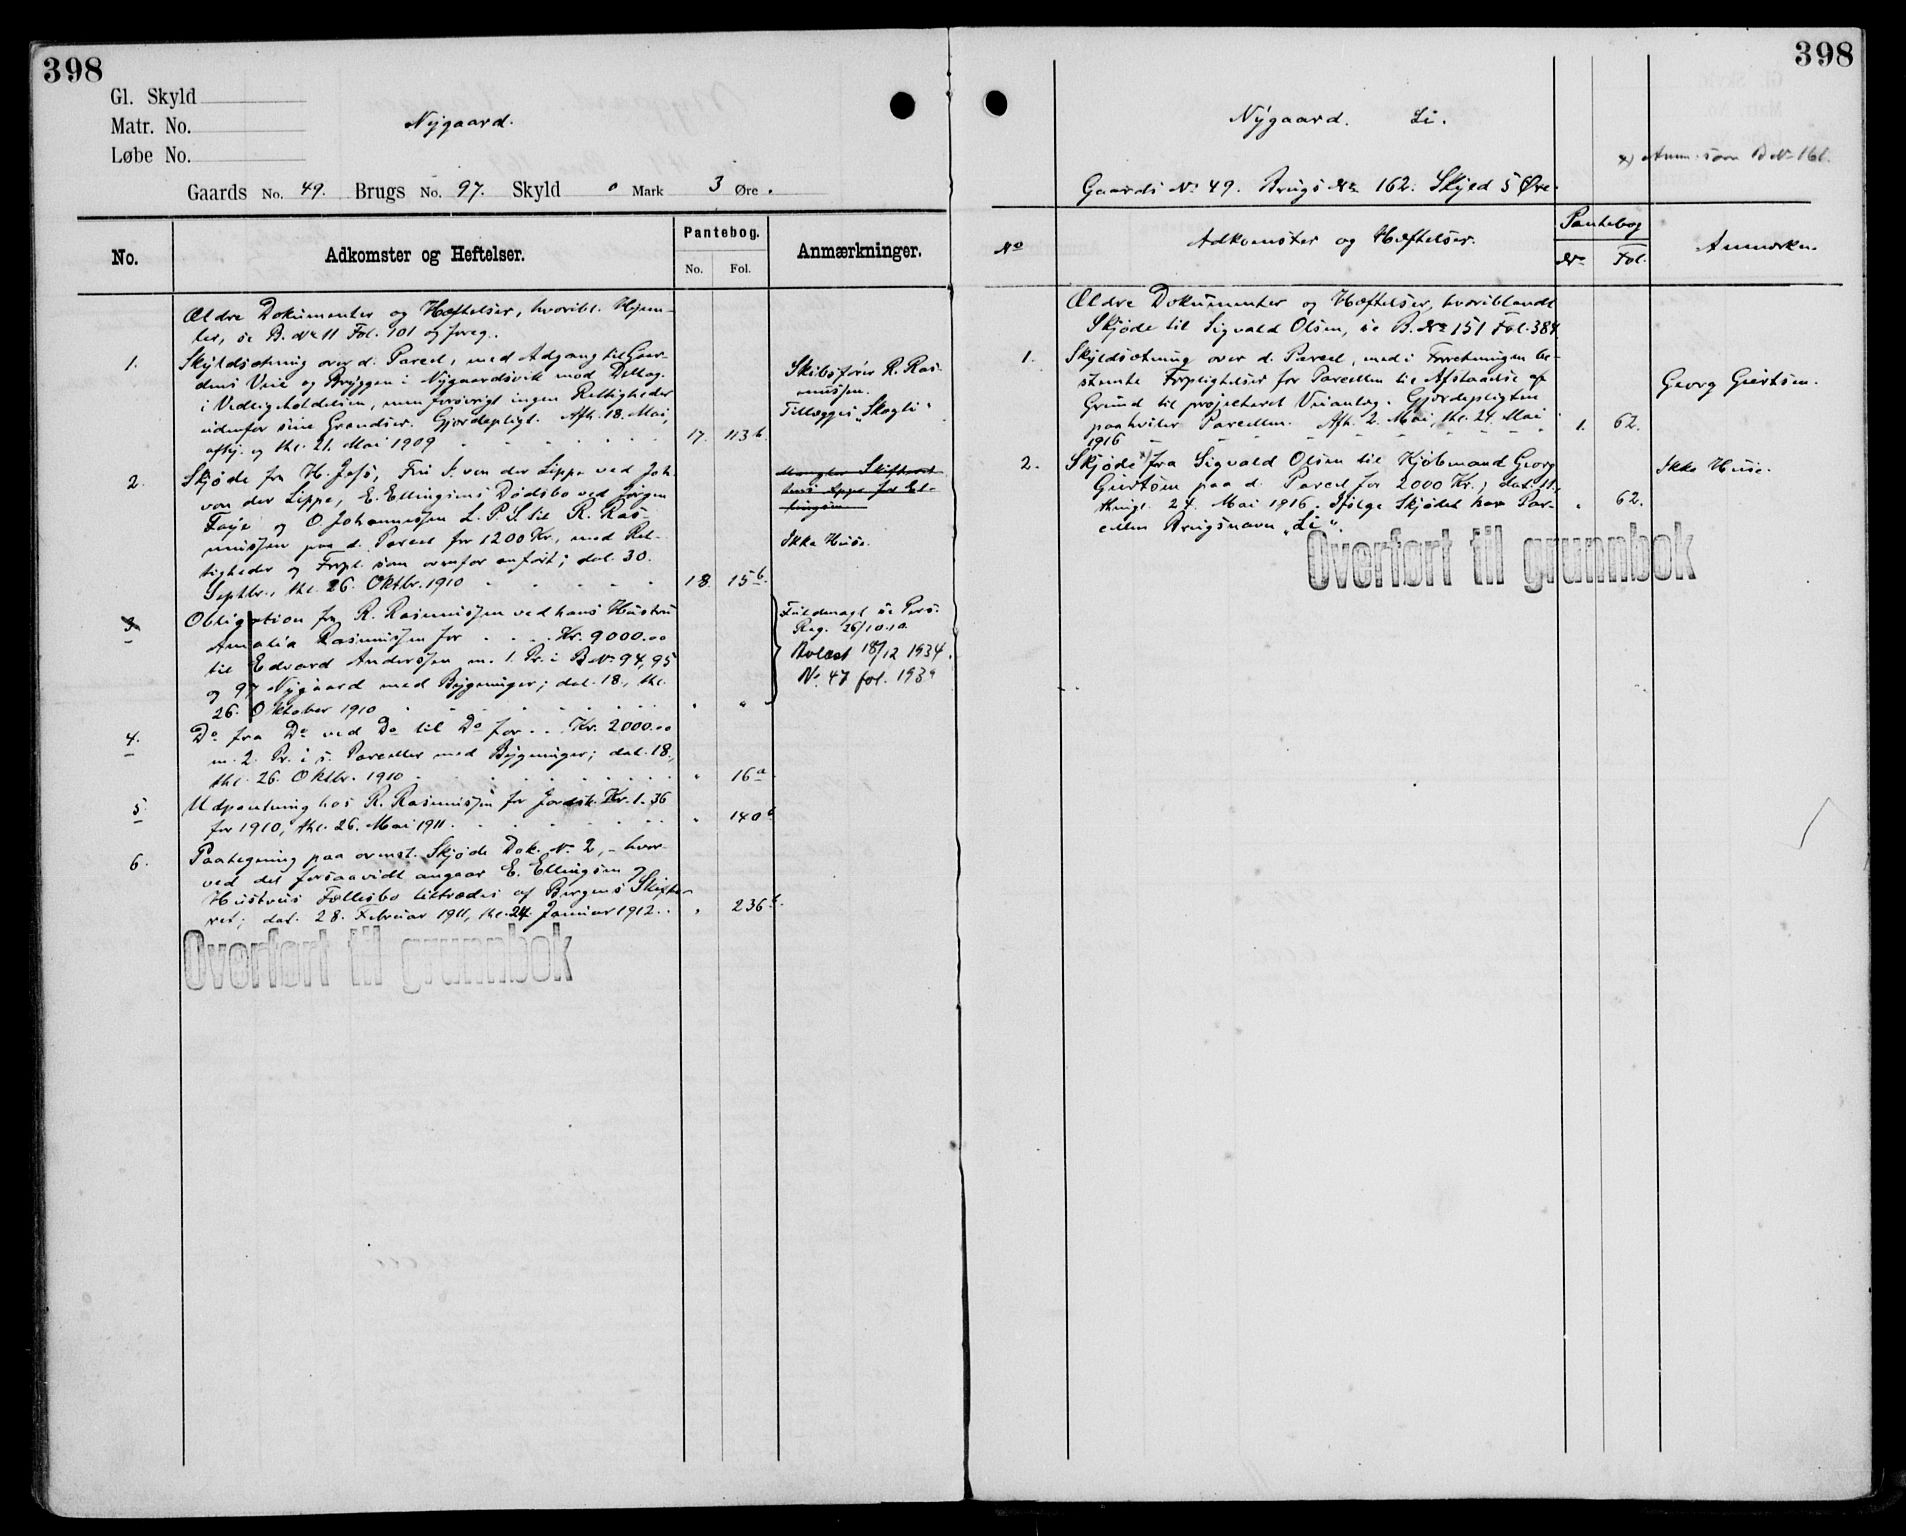 398
Gl. Skyld
Matr. No.
Løbe No.
Nygaard.
Gaards No. 49. Brugs No. 97. Skyld 0 Mark 3 Øre.
No.
Adkomster og Heftelser.
Pantebog.
No. Fol.
Anmærkninger.
Ældre Dokumenter og Hæftelser, hvoribl. Hjem-
ler, se B. No 11 Fol. 101 og foreg.
1. Skyldsætning over d. Parcel, med Adgang til Gaar-
dens Veie og Bryggen i Nygaardsvik mod Deltag.
i Vedligeholdelsen, men forøvrigt ingen Rettigheder
udenfor sine Grændser. Gjærdepligt. Afh. 18. Mai,
afhj. og thl. 21. Mai 1909 17. 113b.
Skibsfører R. Ras-
mussen.
Tillægges "Skogli"
2. Skjøde fra H. Jess, Fru I. von der Lippe ved Joh.
von der Lippe, E. Ellingsens Dødsbo ved Jørgen
Faye og O. Johannessen L. P. S. til R. Ras-
mussen paa d. Parcel for 1200 Kr., med Ret-
tigheder og Forpl. som ovenfor anført; dat. 30.
Septbr., thl. 26. Oktbr. 1910 18. 15b.
Mangler Skifteret-
tens Appr. for El-
lingsen
Ikke Huse.
3. Obligation fra R. Rasmussen ved hans Hustru
Amalia Rasmussen for Kr. 9000.00
til Edvard Anderssen m. 1. Pr. i B No 94, 95
og 97 Nygaard med Bygninger; dat. 18., thl.
26. Oktober 1910 " "
Fuldmagt se Pers.
Reg. 26/10.10.
Avlæst 18/12 1934.
No. 47 fol. 193a
4. Do fra Do ved Do til Do for Kr. 2000.00
m. 2. Pr. i s. Parceller med Bygninger; dat. 18.,
thl. 26. Oktbr. 1910 " 16a.
5. Udpantning hos R. Rasmussen for Jordsk. Kr. 1.36
for 1910, thl. 26. Mai 1911. " 140b
6. Paategning paa ovenst. Skjøde Dok. No. 2, - hvor-
ved det forsaavidt angaar E. Ellingsen og
Hustrus Fællesbo tiltrædes af Bergens Skifte-
ret; dat. 28. Februar 1911, thl. 24. Januar 1912. " 236b.
Overført til grunnbok
398
Nygaard. Li.
x) Anm. som B No 161.
Gaards No 49. Brugs No 162. Skyld 5 Øre.
No
Adkomster og Hæftelser.
Pantebog
No Fol.
Anmærkn.
Ældre Dokumenter og Hæftelser, hvoriblandt
Skjøde til Sigvald Olsen, se B. No 151 Fol. 384.
1. Skyldsætning over d. Parcel, med i Forretningen be-
stemte Forpligtelser for Parcellen til Afstaaelse af
Grund til projecteret Veianlæg. Gjærdepligten
paahviler Parcellen. Afh. 2. Mai, thl. 24. Mai
1916 1. 62.
Georg Giertsen.
2. Skjøde x) fra Sigvald Olsen til Kjøbmand Georg
Giertsen paa d. Parcel for 2000 Kr.; dat. 11.,
thingl. 24. Mai 1916. Ifølge Skjødet har Par-
cellen Brugsnavn "Li". " 62.
Ikke Huse.
Overført til grunnbok